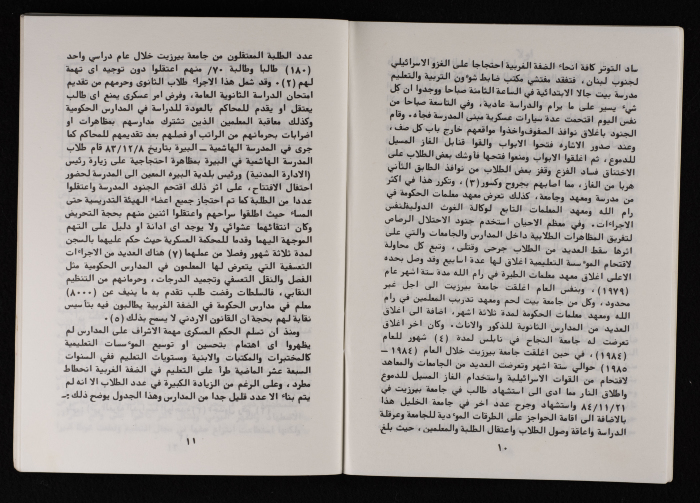 ساد التوتر كافة انحاء الضفة الغربية احتجاجا على الغزو الاسرائيلي
لجنوب لبنان، فتفقد مفتشي مكتب ضابط شوءون التربية والتعليم
مدرسة بيت جالا الابتدائية في الساعة الثامنة صباحا ووجدوا ان كل
شيء يسير على ما يرام والدراسة عادية، وفي التاسعة صباحا من
نفس اليوم اقتحمت عدة سيارات عسكرية مبنى المدرسة فجاءه وقام
الجنود باغلاق نوافذ الصفوف واخذوا مواقعهم خارج باب كل صف،
وعند صدور الاشاره فتحوا الابواب والقوا قنابل الغاز المسيل
للدموع، ثم اغلقوا الابواب ومنعوا فتحها فاوشك بعض الطلاب على
الاختناق فساد الفزع وقفز بعض الطلاب من نوافذ الطابق الثاني
هربا من الغاز، مما اصابهم بجروح وكسور(٣)، وتكرر هذا في اكثر
من مدرسة ومعهد وجامعة، كذلك تعرض معهد معلمات الحكومة في
رام الله ومعهد المعلمات التابع لوكالة الغوث الدولية لنفس
الاجراءات، وفي معظم الاحيان استخدم جنود الاحتلال الرصاص
لتفريق المظاهرات الطلابية داخل المدارس والجامعات والتي على
اثرها سقط العديد من الطلاب جرحى وقتلى، وتبع كل محاولة
لاقتحام الموءسسة التعليمية اغلاق لها عدة اسابيع وقد وصل بحده
الاعلى اغلاق معهد معلمات الطيرة في رام الله مدة ستة اشهر عام
(١٩٧٩)، وبنفس العام اغلقت جامعة بيرزيت الى اجل غير
محدود، وكل من جامعة بيت لحم ومعهد تدريب المعلمين في رام
الله ومعهد معلمات الحكومة لمدة ثلاثة اشهر، اضافة الى اغلاق
العديد من المدارس الثانوية للذكور والاناث. وكان اخر اغلاق
تعرضت له جامعة النجاح في نابلس لمدة (٤) شهور للعام
(١٩٨٤)، في حين اغلقت جامعة بيرزيت خلال العام (١٩٨٤ـ
١٩٨٥) حوالي ستة اشهر وتعرضت العديد من الجامعات والمعاهد
لاقتحام من القوات الاسرائيلية واستخدام الغاز المسيل للدموع
واطلاق النار مما ادى الى استشهاد طالب في جامعة بيرزيت في
٨٤/١١/٢١ واستشهاد وجرح عدد اخر في جامعة الخليل هذا
بالاضافة الى اقامة الحواجز على الطرقات الموءدية للجامعة وعرقلة
الدراسة واعاقة وصول الطلاب واعتقال الطلبة والمعلمين، حيث بلغ
١٠
عدد الطلبة المعتقلون من جامعة بيرزيت خلال عام دراسي واحد
(١٨٠) طالبا وطالبة ٧٠/ منهم اعتقلوا دون توجيه اى تهمة
لهم(٢). وقد شمل هذا الاجراء طلاب الثانوى وحرمهم من تقديم
امتحان الدراسة الثانوية العامة، وفرض امر عسكرى يمنع اى طالب
يعتقل او يقدم للمحاكم بالعودة للدراسة في المدارس الحكومية
وكذلك معاقبة المعلمين الذين تشترك مدارسهم بمظاهرات او
اضرابات بحرمانهم من الراتب او فصلهم بعد تقديمهم للمحاكم كما
جرى في المدرسة الهاشمية ــ البيرة بتاريخ ٨٢/١٢/٨ قام طلاب
المدرسة الهاشمية في البيرة بمظاهرة احتجاجية على زيارة رئيس
(الادارة المدنية) ورئيس بلدية البيره المعين الى المدرسة لحضور
احتفال الافتتاح، على اثر ذلك اقتحم الجنود المدرسة واعتقلوا
عددا من الطلبة كما تم احتجاز جميع اعضاء الهيئة التدريسية حتى
المساء حيث اطلقوا سراحهم واعتقلوا اثنين منهم بحجة التحريض
وكان انتقائهما عشوائي ولا يوجد اى ادانة او دليل على التهم
الموجهة اليهما وقدما للمحكمة العسكرية حيث حكم عليهما بالسجن
لمدة ثلاثة شهور وفصلا من عملهما (٧) هناك العديد من الاجراءات
التعسفية التي يتعرض لها المعلمون في المدارس الحكومية مثل
الفصل والنقل التعسفي وتجميد الدرجات، وحرمانهم من التنظيم
النقابي، فالسلطات رفضت طلب تقدم به ما ينيف عن (٨٠٠٠)
معلم في مدارس الحكومة في الضفة الغربية يطالبون فيه بتأسيس
نقابة لهم بحجة ان القانون الاردني لا يسمح بذلك (٥).
ومنذ ان تسلم الحكم العسكرى مهمة الاشراف على المدارس لم
يظهروا اى اهتمام بتحسين او توسيع الموءسسات التعليمية
كالمختبرات والمكتبات والابنية ومستويات التعليم ففي السنوات
السبعة عشر الماضية طرأ على التعليم في الضفة الغربية انحطاط
مطرد، وعلى الرغم من الزيادة الكبيرة في عدد الطلاب الا انه لم
يتم بناء الا عدد قليل جدا من المدارس وهذا الجدول يوضح ذلك:ـ
١١